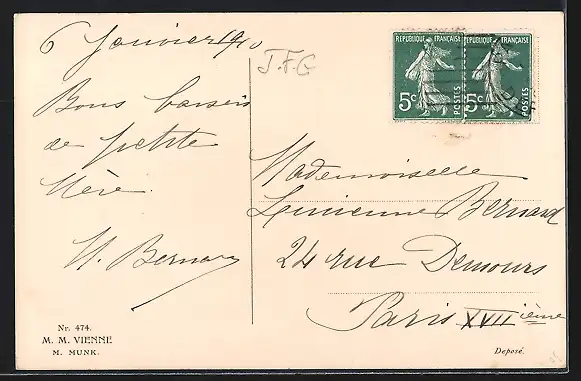 6 Janvier 1910
J.F.G
Bons baisers
de petite
Mère.
H. Bernard
Nr. 474.
M. M. VIENNE
M. MUNK.
REPUBLIQUE FRANÇAISE
5c
POSTES
REPUBLIQUE FRANÇAISE
5c
POSTES
Mademoiselle
Lucienne Bernard
24 rue Demours
Paris XVII ième
Deposé.